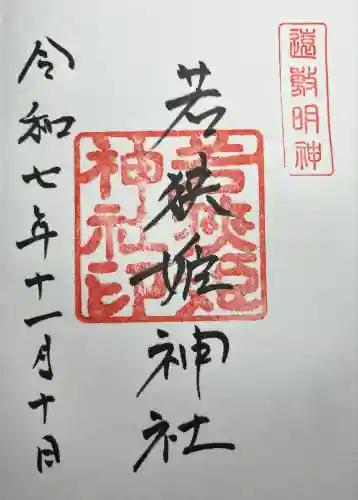 遠敷明神
若狹姫神社
若狹姫神社印
令和七年十一月十日